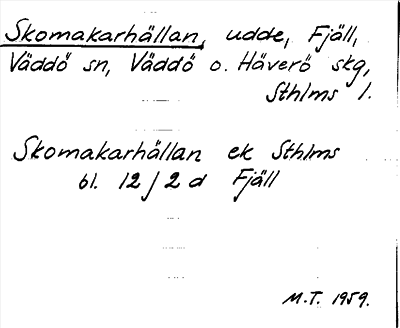 Skomakarhällan, udde, Fjäll,
Väddö sn, Väddö o. Häverö skg,
Sthlms l.
Skomakarhällan ek Sthlms
bl. 12/2 d Fjäll
M.T. 1959.